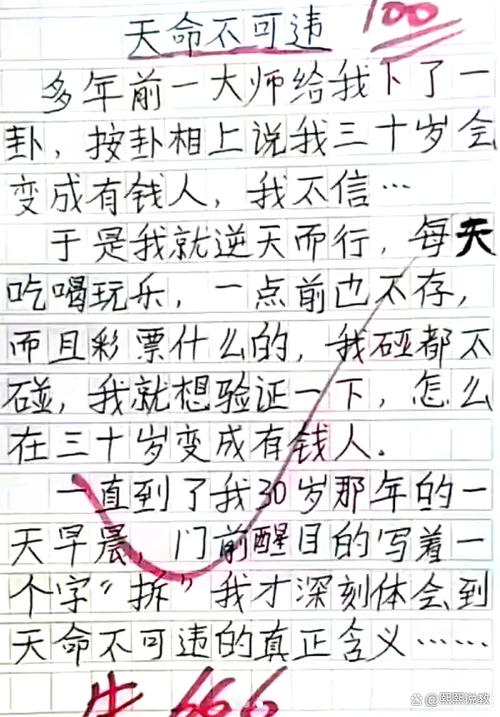 天命不可违 100
多年前一大师给我下了一
卦，按卦相上说我三十岁会
变成有钱人，我不信…
于是我就逆天而行，每天
吃喝玩乐，一点前也不存，
而且彩票什么的，我碰都不
碰，我就想验证一下，怎么
在三十岁变成有钱人。
一直到了我30岁那年的一
天早晨，门前醒目的写着一
个字“拆”我才深刻体会到
天命不可违的真正含义……
牛 666
熙熙说教